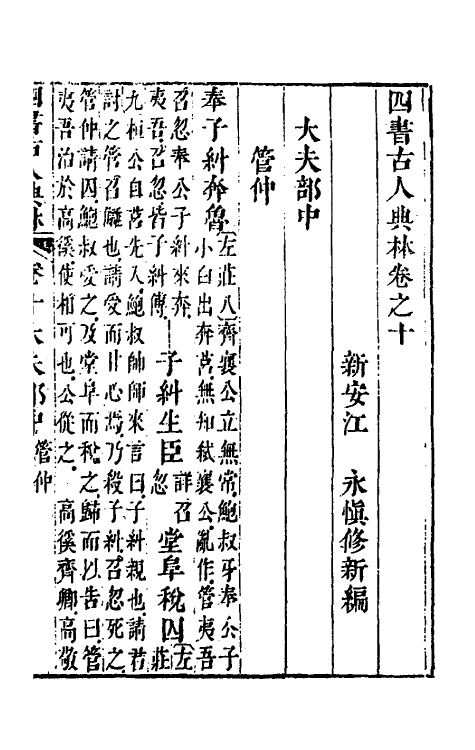 四書古人典林卷之十
新安江　永慎修新編
大夫部中
管仲
奉子糾奔魯
左莊八齊襄公立無常鮑叔牙奉公子
小白出奔莒無知弒襄公亂作管夷吾
召忽奉公子糾來奔
夷吾召忽皆子糾傅
子糾生臣
詳召
忽
堂阜稅囚
左
莊
九桓公自莒先入鮑叔帥師來言曰子糾親也請君
討之管召讎也請受而甘心焉乃殺子糾召忽死之
管仲請囚鮑叔受之及堂阜而稅之歸而以告曰管
夷吾治於高傒使相可也公從之　高傒齊卿高敬
四書古人典林　卷十大夫部中　管仲